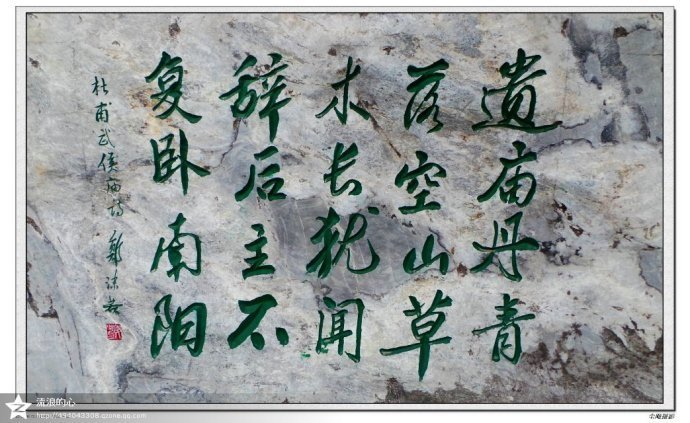 遗庙丹青
落空山草
木长犹闻
辞后主不
复卧南阳
杜甫武侯庙诗
流浪的心
http://494043308.qzone.qq.com